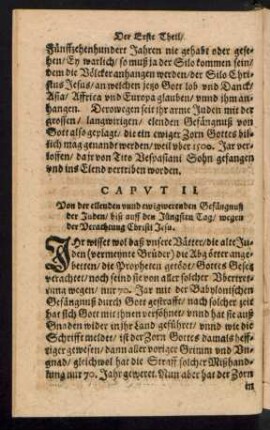 Der Erste Theil/
Fünfftzehenhundert Jahren nie gehabt oder gese-
hen/ Ey warlich/ so muß ja der Silo kommen sein/
dem die Völcker anhangen werden/ der Silo Chri-
stus Jesus/ an welchen jetzo Gott lob vnd Danck/
Asia/ Affrica vnd Europa glauben/ vnnd ihm an-
hangen. Derowegen seit ihr arme Juden mit der
grossen/ langwirigen/ elenden Gefängnuß von
Gott also geplagt/ die ein ewiger Zorn Gottes bil-
lich mag genandt werden/ weil vber 1500. Jar ver-
loffen/ daß von Tito Vespasiani Sohn gefangen
vnd ins Elend vertriben worden.
CAPVT II.
Von der ellenden vnnd ewigwerenden Gefängnuß
der Juden/ biß auff den Jüngsten Tag/ wegen
der Verachtung Christi Jesu.
IHr wisset wol daß vnsere Vätter/ die alte Ju-
den (vermeynte Brüder) die Abgötter ange-
betten/ die Propheten getödt/ Gottes Gesetz
verachtet/ noch seind sie von aller solcher Vbertret-
tung wegen/ nur 70. Jar mit der Babylonischen
Gefängnuß durch Gott gestrafft/ nach solcher zeit
hat sich Gott mit ihnen versöhnet/ vnnd hat sie auß
Gnaden wider in jhr Land geführet/ vnnd wie die
Schrifft meldet/ ist der Zorn Gottes damals heff-
tiger gewesen/ dann aller voriger Grimm vnd Vn-
gnad/ gleichwol hat die Straff solcher Mißhand-
lung nur 70. Jahr geweret. Nun aber hat der Zorn
in